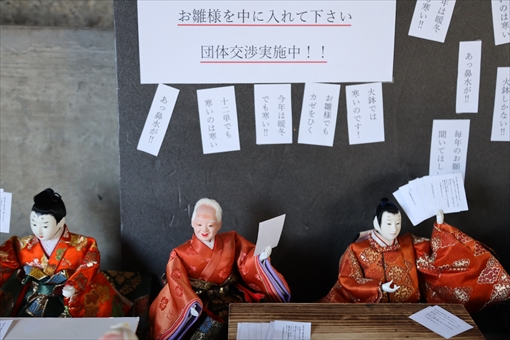 お雛様を中に入れて下さい
団体交渉実施中！！
今年は暖冬
でも寒い!!
寒いのは寒い
火鉢しかない!!
あっ鼻水が!!
毎年のお願
聞いてほし
火鉢では
寒いのです!
お雛様でも
カゼをひく
今年は暖冬
でも寒い!!
十二単でも
寒いのは寒い
あっ鼻水が!!